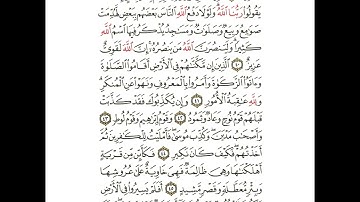 يَقُولُوا۟ رَبُّنَا ٱللَّهُ وَلَوْلَا دَفْعُ ٱللَّهِ ٱلنَّاسَ بَعْضَهُم بِبَعْضٍ لَّهُدِّمَتْ
صَوَٰمِعُ وَبِيَعٌ وَصَلَوَٰتٌ وَمَسَٰجِدُ يُذْكَرُ فِيهَا ٱسْمُ ٱللَّهِ
كَثِيرًا وَلَيَنصُرَنَّ ٱللَّهُ مَن يَنصُرُهُۥٓ إِنَّ ٱللَّهَ لَقَوِىٌّ
عَزِيزٌ ٤٠ ٱلَّذِينَ إِن مَّكَّنَّٰهُمْ فِى ٱلْأَرْضِ أَقَامُوا۟ ٱلصَّلَوٰةَ
وَءَاتَوُا۟ ٱلزَّكَوٰةَ وَأَمَرُوا۟ بِٱلْمَعْرُوفِ وَنَهَوْا۟ عَنِ ٱلْمُنكَرِ
وَلِلَّهِ عَٰقِبَةُ ٱلْأُمُورِ ٤١ وَإِن يُكَذِّبُوكَ فَقَدْ كَذَّبَتْ
قَبْلَهُمْ قَوْمُ نُوحٍ وَعَادٌ وَثَمُودُ ٤٢ وَقَوْمُ إِبْرَٰهِيمَ وَقَوْمُ لُوطٍ ٤٣
وَأَصْحَٰبُ مَدْيَنَ وَكُذِّبَ مُوسَىٰ فَأَمْلَيْتُ لِلْكَٰفِرِينَ ثُمَّ
أَخَذْتُهُمْ فَكَيْفَ كَانَ نَكِيرِ ٤٤ فَكَأَيِّن مِّن قَرْيَةٍ
أَهْلَكْنَٰهَا وَهِىَ ظَالِمَةٌ فَهِىَ خَاوِيَةٌ عَلَىٰ عُرُوشِهَا
وَبِئْرٍ مُّعَطَّلَةٍ وَقَصْرٍ مَّشِيدٍ ٤٥ أَفَلَمْ يَسِيرُوا۟ فِى ٱلْأَرْضِ